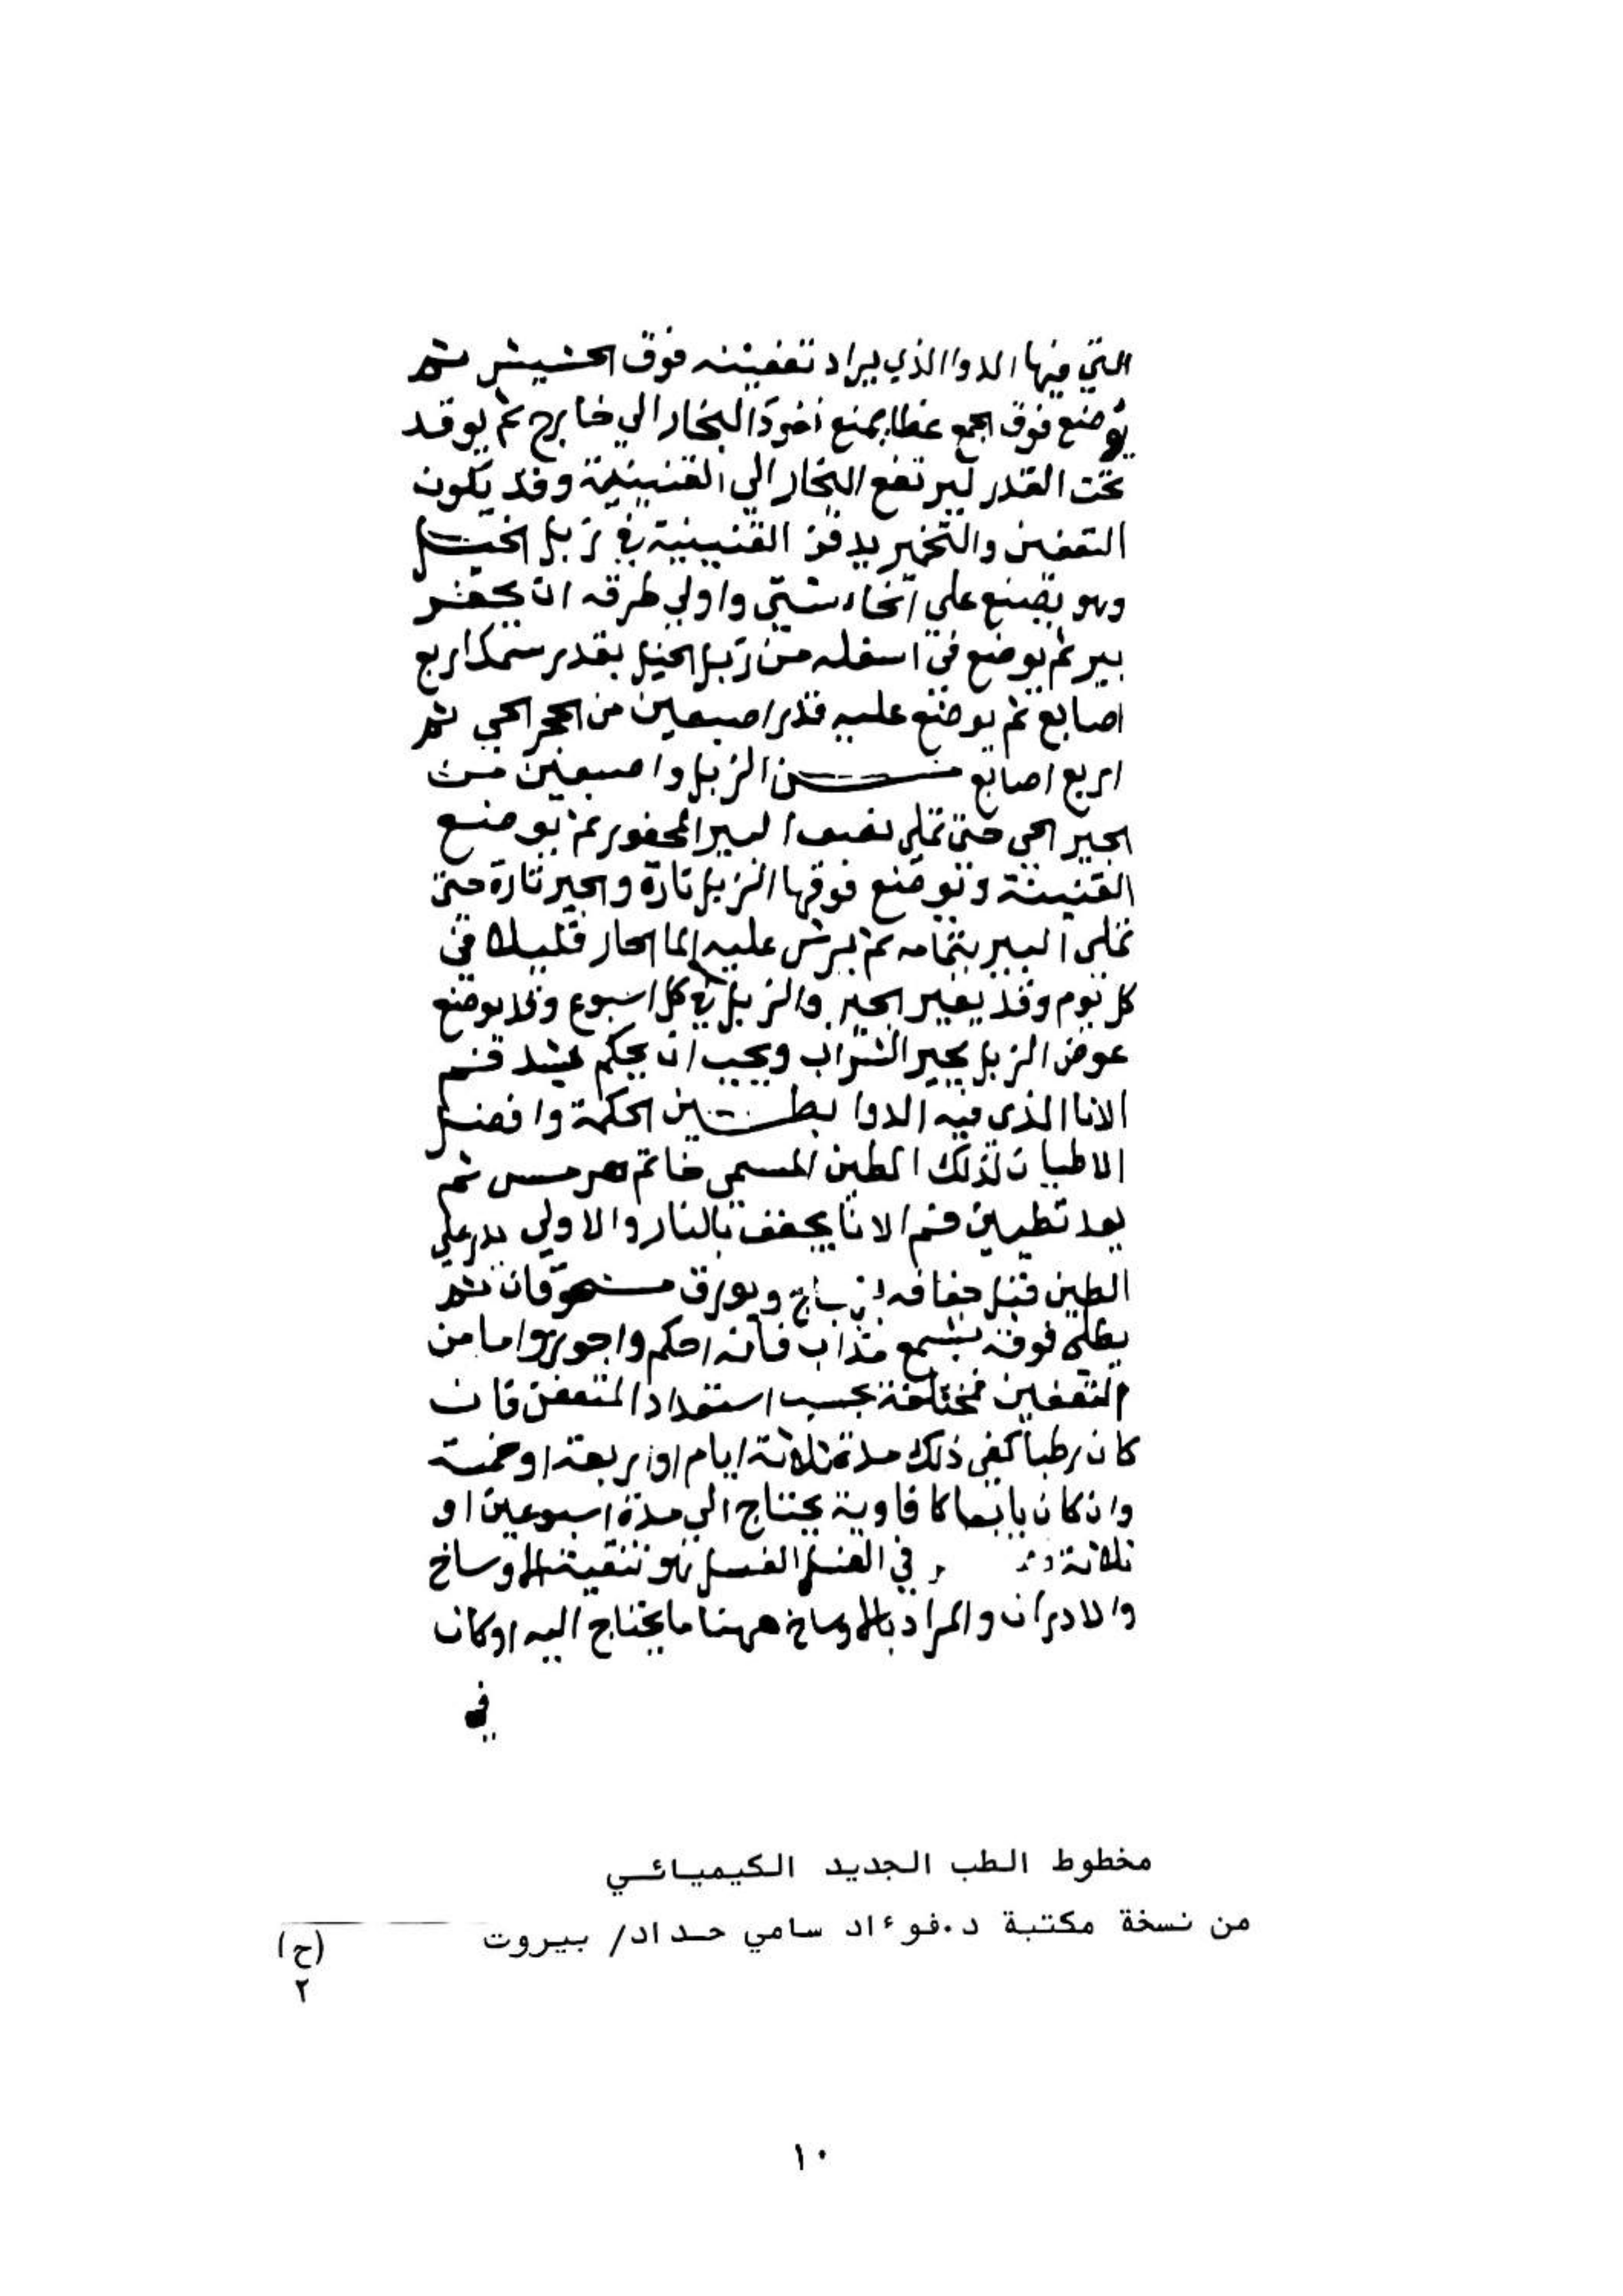 التي فيها الدوا الذي يراد تعفينه فوق الحشيش ثم
يوضع فوق الجمع غطا يمنع نفوذ البخار الي خارج ثم يوقد
تحت القدر ليرتفع البخار الي القنينة وقد يكون
التعفين والتخمير بدفن القنينية في زبل الخيل
وهو يصنع علي انحاء شتي واولي طرقه ان يحفر
بير ثم يوضع في اسفله من زبل الخيل بقدر سمك اربع
اصابع ثم يوضع عليه قدر اصبعين من الحجر الحي ثم
اربع اصابع من الزبل واصبعين من
الجير الحي حتي تملي نصف البير المحفور ثم يوضع
القنينة و توضع فوقها الزبل تارة والجير تارة حتي
تملي البير بتمامه ثم يرش عليه الما الحار قليلا في
كل يوم وقد يغير الجير والزبل في كل اسبوع وقد يوضع
عوض الزبل بجير الشراب ويجب ان يحكم شد فم
الانا الذي فيه الدوا بطين الحكمة وافضل
الاطيان لذلك الطين المسمي خاتم هرمس ثم
بعد تطيين فم الانا يجفف بالنار والاولي يدر علي
الطين قبل جفافه زجاج وبورق مسحوقان ثم
يطلي فوقه بشمع مذاب فانه احكم واجود واما من
التعفين فمختلفة بحسب استعداد المتعفن فان
كان رطبا كفي ذلك مدة ثلاثة ايام او اربعة او خمسة
وان كان يابسا كافاوية يحتاج الي مدة اسبوعين او
ثلاثة في الغسل الغسل هو تنقية الاوساخ
والادران والمراد بالاوساخ ههنا ما يحتاج اليه او كان
في
مخطوط الطب الجديد الكيميائي
من نسخة مكتبة د.فوءاد سامي حداد/ بيروت
(ح)
٢
١٠